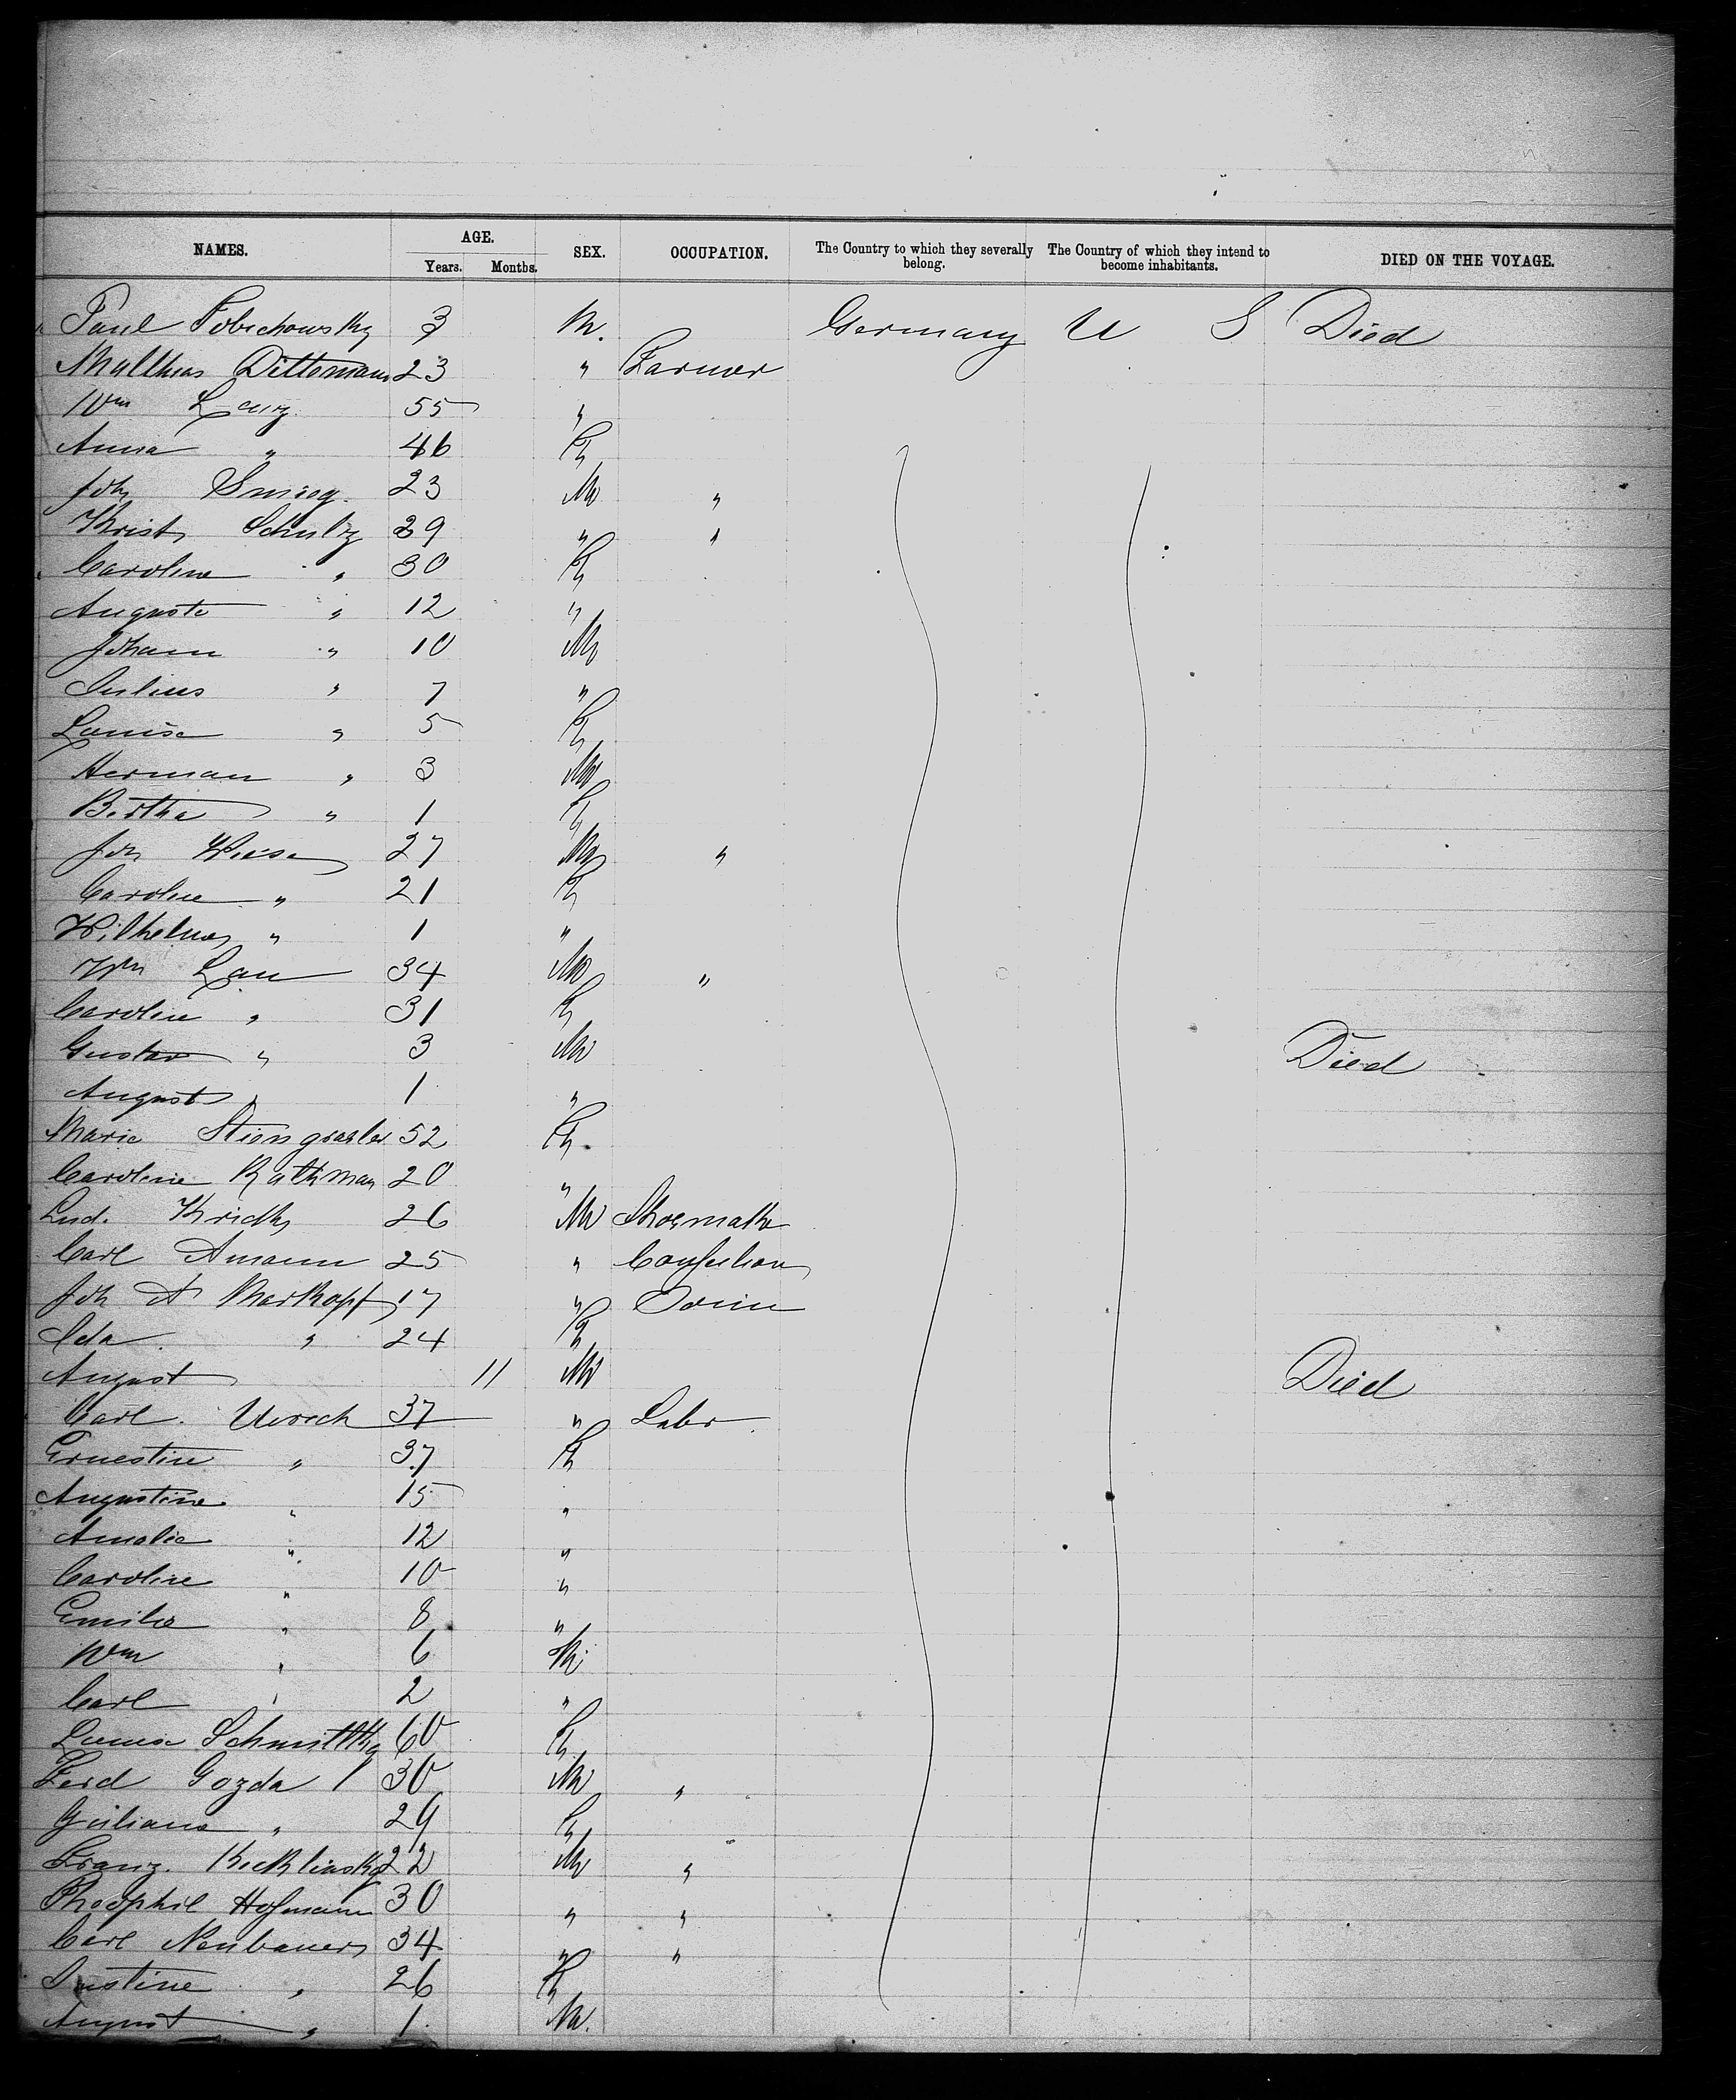 NAMES. AGE. SEX. OCCUPATION. The Country to which they severally belong. The Country of which they intend to become inhabitants. DIED ON THE VOYAGE.
Years. Months.
Paul 3 M. Germany U S Died
Matthias Dittomann 23 " Farmer
Wm Lanz 55 "
Anna " 46 F
Joh 23 M "
Krist Schultz 29 " "
Caroline " 30 F
Auguste " 12 "
Johann " 10 M
Julius " 7 "
Louise " 5 F
Herman " 3 M
Bertha " 1 F
Joh Wiese 27 M "
Caroline " 21 F
Wilhelm " 1 "
Wm Lau 34 M "
Caroline " 31 F
Gustav " 3 M Died
August " 1 "
Marie 52 F
Caroline Rathman 20 "
Lud. 26 M Shoemak
Carl Amann 25 "
Joh A Markopf 17 "
Ida " 24 F
August 11 M Died
Carl 37 " Labr
Ernestine " 37 F
Augustine " 15 "
Amalie " 12 "
Caroline " 10 "
Emilie " 8 "
Wm " 6 M
Carl " 2 "
Louise 60 F
Ferd Gozda 30 M "
Juliane " 29 F
Franz 22 M "
Theophil Hofmann 30 " "
Carl Neubauer 34 " "
Justine " 26 F
August " 1 M.